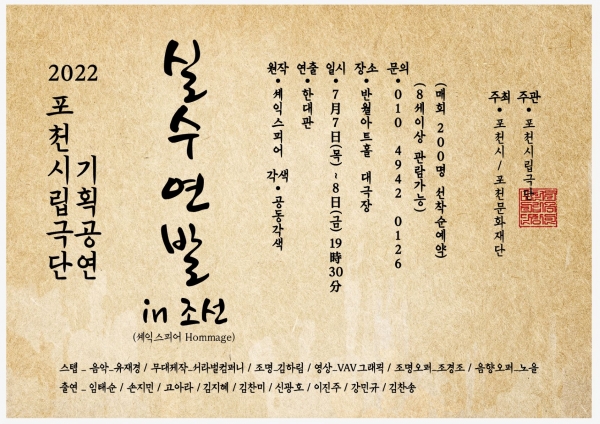 2022
포천시립극단
기획공연
실수연발
in 조선
(셰익스피어 Hommage)
원작 • 셰익스피어
각색 • 공동각색
연출 • 한대관
일시 • 7월 7일(목) ~ 8일(금) 19時 30分
장소 • 반월아트홀 대극장
문의 • 010 4942 0126
(8세이상 관람가능)
(매회 200명 선착순예약)
주최 • 포천시 / 포천문화재단
주관 • 포천시립극단
스텝 _ 음악_유재경 / 무대제작_서라벌컴퍼니 / 조명_김하림 / 영상_VAV그래픽 / 조명오퍼_조경조 / 음향오퍼_노을
출연 _ 임태순 / 손지민 / 고아라 / 김지혜 / 김찬미 / 신광호 / 이진주 / 강민규 / 김찬송